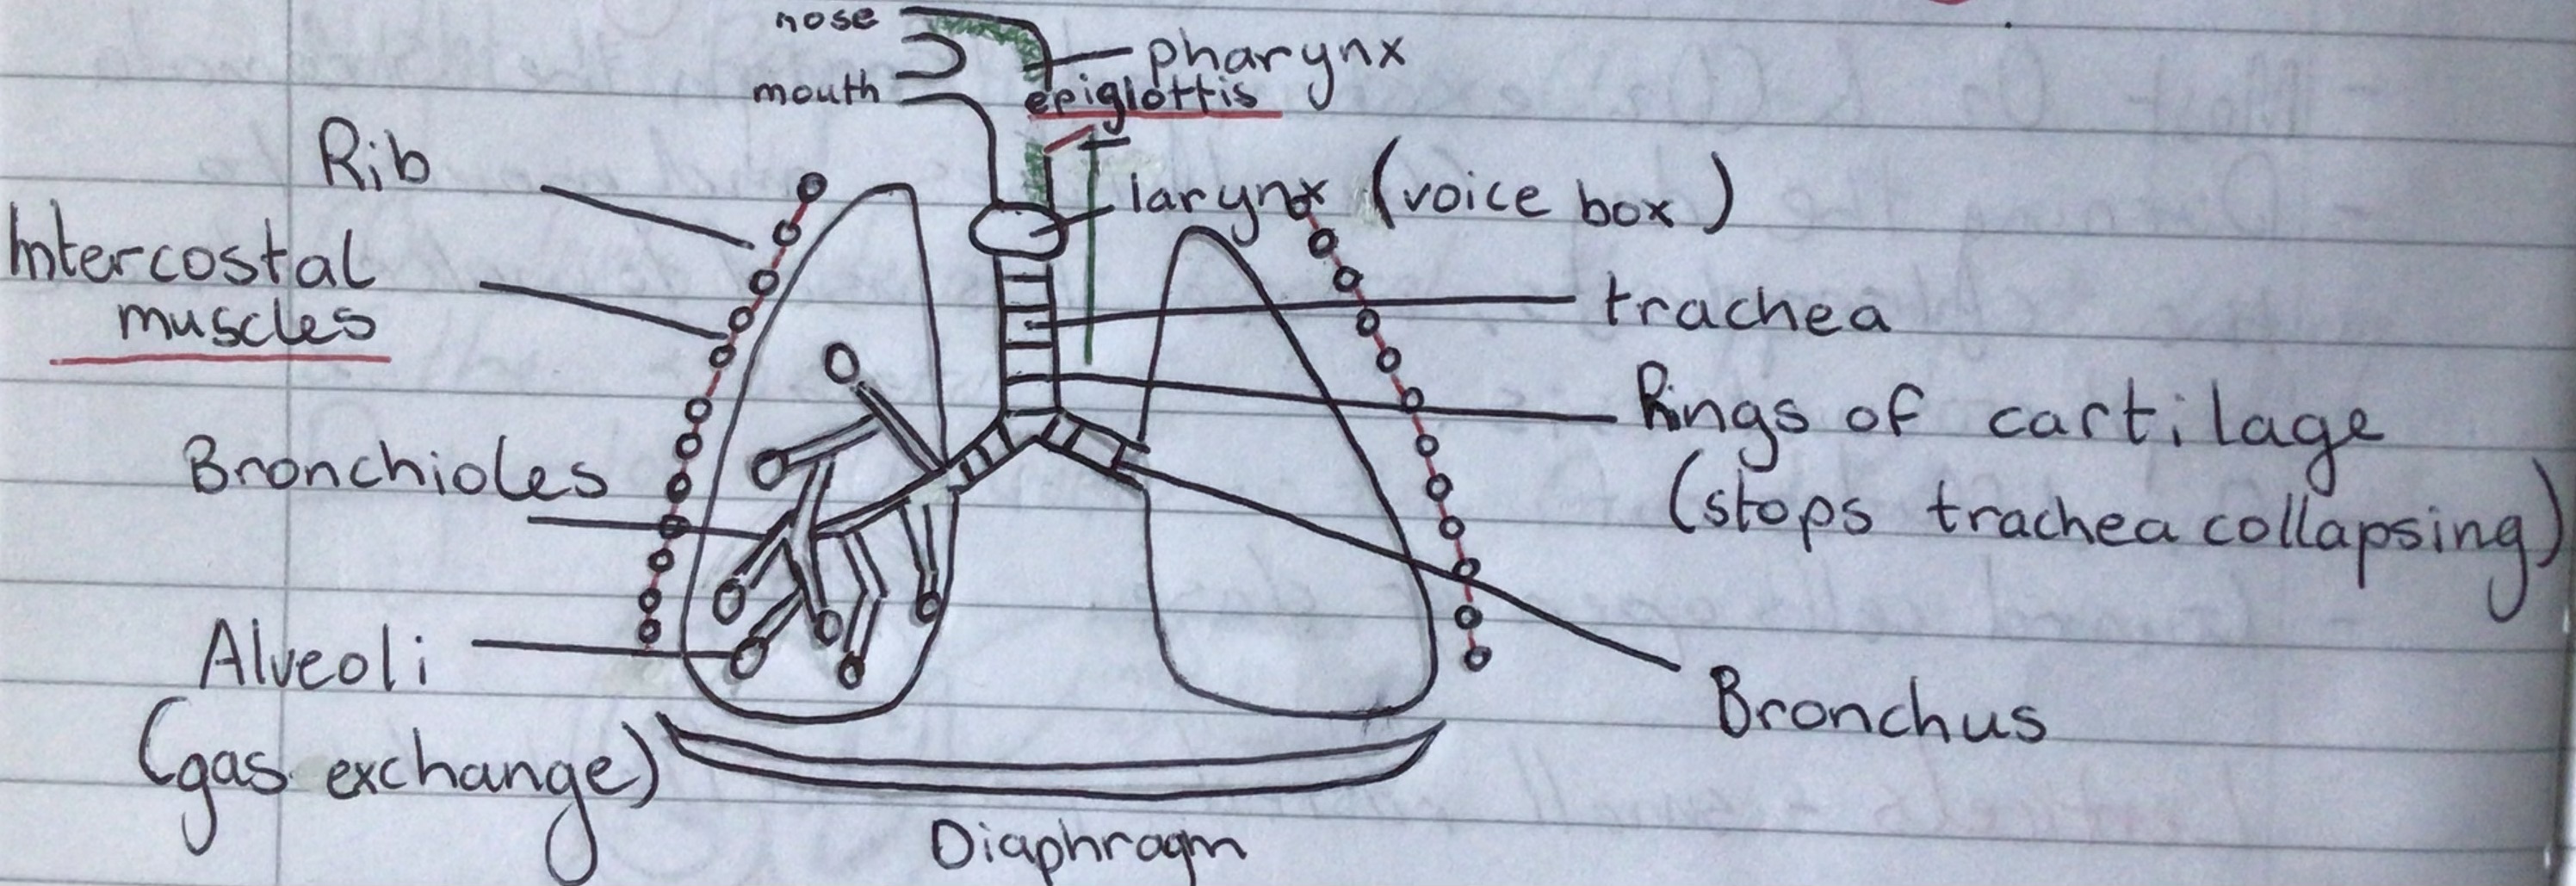 nose
pharynx
mouth
epiglottis
Rib
larynx (voice box)
Intercostal
muscles
trachea
Rings of cartilage
(stops trachea collapsing)
Bronchioles
Alveoli
(gas exchange)
Bronchus
Diaphragm